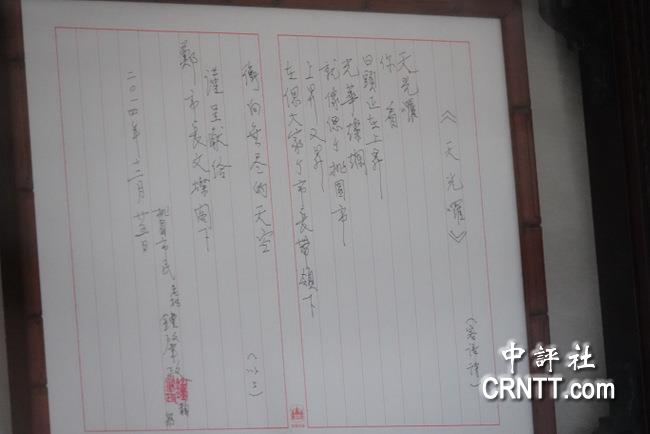 《天光囉》
(客語詩)
天光囉
你看
日頭正在上昇
光華燦爛
就像偲个桃園市
上昇又昇
在偲大家个市長帶領下
衝向無尽的天空
(以上)
謹呈獻給
鄭市長文燦閣下
桃園市民 鍾肇政
二〇一四年十二月廿五日
中評社
CRNTT.com